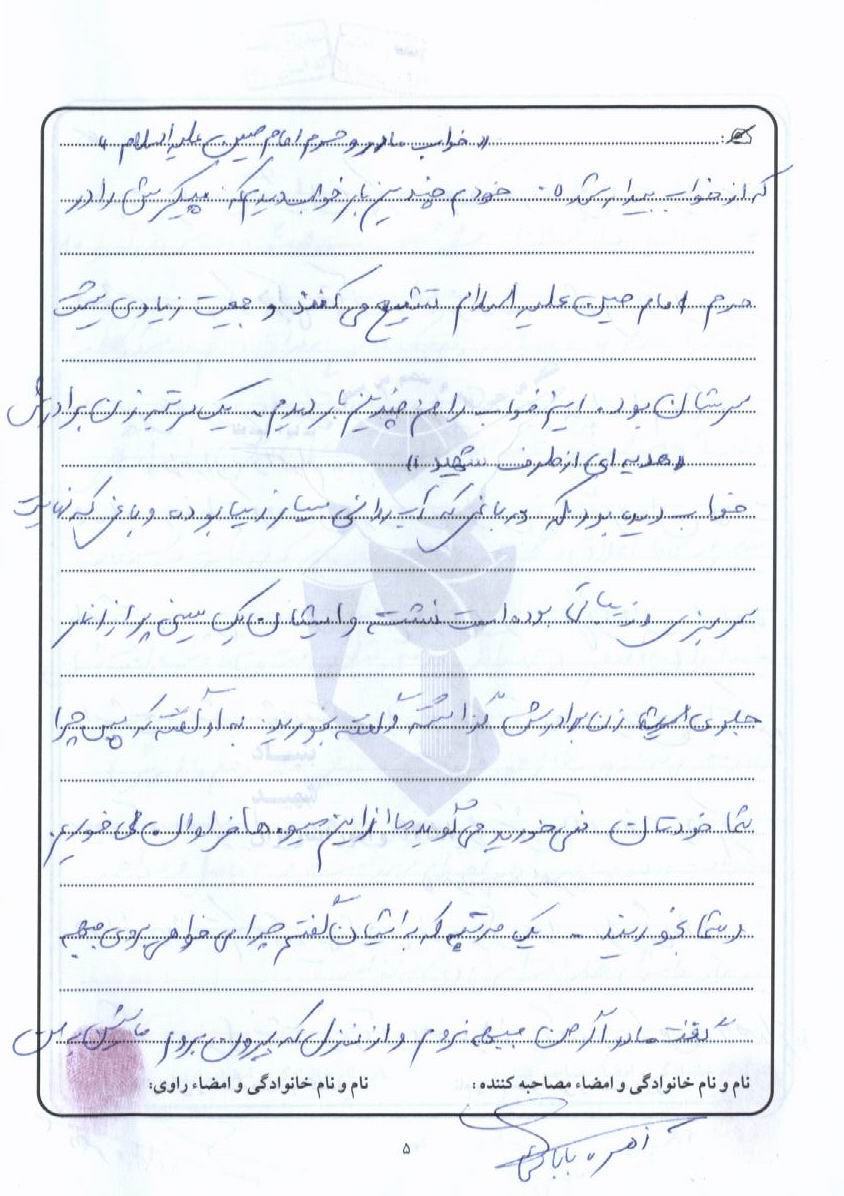 «خواب مادر و حرم امام حسین علیه السلام»
که از خواب بیدار شده. خودم چندین بار خواب دیدم که پیکرش را در
حرم امام حسین علیه السلام تشییع می کنند و جمعیت زیادی پشت
سرشان بود. این خواب را من چندین بار دیدم. یک مرتبه زن برادرش
«هدیه ای از طرف شهید»
خواب دیده بود که در باغی که آب روانی بسیار زیبا بوده و باغی که نهایت
سرسبزی و زیبائی بوده است نشسته و ایشان یک سینی پر از انار
جلوی زن برادرش گذاشته و گفته بخورید. به او گفته که پس چرا
شما خودتان نمی خورید می گوید ما از این میوه ها فراوان می خوریم.
و شما بخورید. یک مرتبه که به ایشان گفتم چرا می خواهی بروی جبهه
گفت مادر اگر من جبهه نروم و از منزل که بیرون بروم به من
نام و نام خانوادگی و امضاء مصاحبه کننده: نام و نام خانوادگی و امضاء راوی:
زهره بابائی
۵